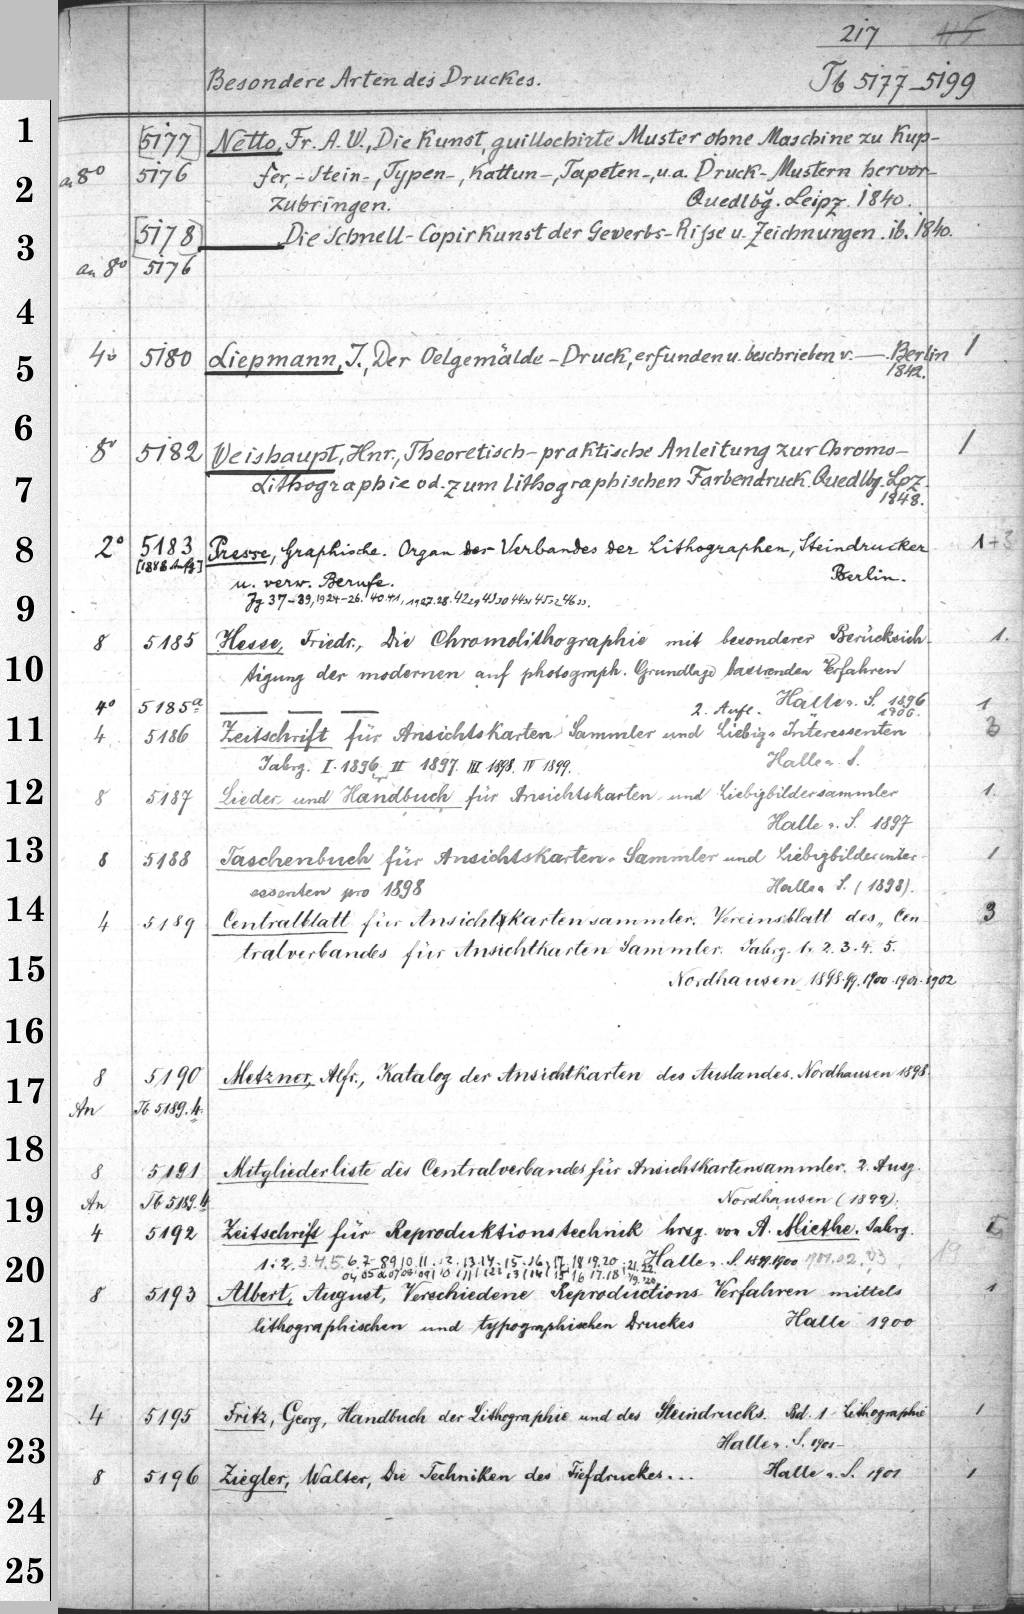 217 415
Besondere Arten des Druckes. Tb 5177-5199
[5177] Netto, Fr. A. W., Die Kunst, guillochirte Muster ohne Maschine zu Kup-
an 8° 5176 fer,-Stein-, Typen-, Kattun-, Tapeten-, u.a. Druck-Mustern hervor-
zubringen. Quedlbg. Leipz. 1840.
[5178] ——— Die Schnell-Copirkunst der Gewerbs-Risse u. Zeichnungen. ib. 1840.
an 8° 5176
4° 5180 Liepmann, J., Der Oelgemälde-Druck, erfunden u. beschrieben v. — Berlin 1
1842.
8° 5182 Weishaupt, Hnr., Theoretisch-praktische Anleitung zur Chromo- 1
Lithographie od. zum lithographischen Farbendruck. Quedlbg. Lpz.
1848.
2° 5183 Presse, Graphische. Organ des Verbandes der Lithographen, Steindrucker 1+3
u. verw. Berufe. Berlin.
Jg 37-39, 1924-26. 40.41, 1927.28. 42 29 43 30 44 31 45 32 46 33.
8 5185 Hesse, Friedr., Die Chromolithographie mit besonderer Berücksich- 1.
tigung der modernen auf photograph. Grundlage basirenden Erfahren
Halle a. S. 1896
4° 5185a — — — 2. Aufl. 1906. 1
4 5186 Zeitschrift für Ansichtskarten Sammler und Liebig-Interessenten 3
Jahrg. I. 1896. II 1897. III 1898. IV 1899. Halle a. S.
8 5187 Lieder- und Handbuch für Ansichtskarten- und Liebigbildersammler 1.
Halle a. S. 1897
8 5188 Taschenbuch für Ansichtskarten-Sammler und Liebigbilderinter- 1
essenten pro 1898 Halle a S. (1898).
4 5189 Centralblatt für Ansichtskartensammler. Vereinsblatt des „Cen 3
tralverbandes für Ansichtkarten Sammler. Jahrg. 1. 2. 3. 4. 5.
Nordhausen 1898.99.1900.1901.1902
8 5190 Metzner, Alfr., Katalog der Ansichtkarten des Auslandes. Nordhausen 1898.
An Tb 5189.4.
8 5191 Mitgliederliste des Centralverbandes für Ansichtskartensammler. 2. Ausg.
An Tb 5189.4 Nordhausen (1899).
4 5192 Zeitschrift für Reproduktionstechnik hrsg. von A. Miethe. Jahrg.
1. 2. 3. 4. 5. 6. 7. 8 9 10. 11. 12. 13. 14. 15. 16. 17. 18 19. 20 21. 22. Halle a. S. 1899.1900 1901.02.03 19
8 5193 Albert, August, Verschiedene Reproductions-Verfahren mittels 1
lithographischen und typographischen Druckes Halle 1900
4 5195 Fritz, Georg, Handbuch der Lithographie und des Steindrucks. Bd. 1 Lithographie 1
Halle a. S. 1901-
8 5196 Ziegler, Walter, Die Techniken des Tiefdruckes... Halle a. S. 1901 1
1
2
3
4
5
6
7
8
9
10
11
12
13
14
15
16
17
18
19
20
21
22
23
24
25